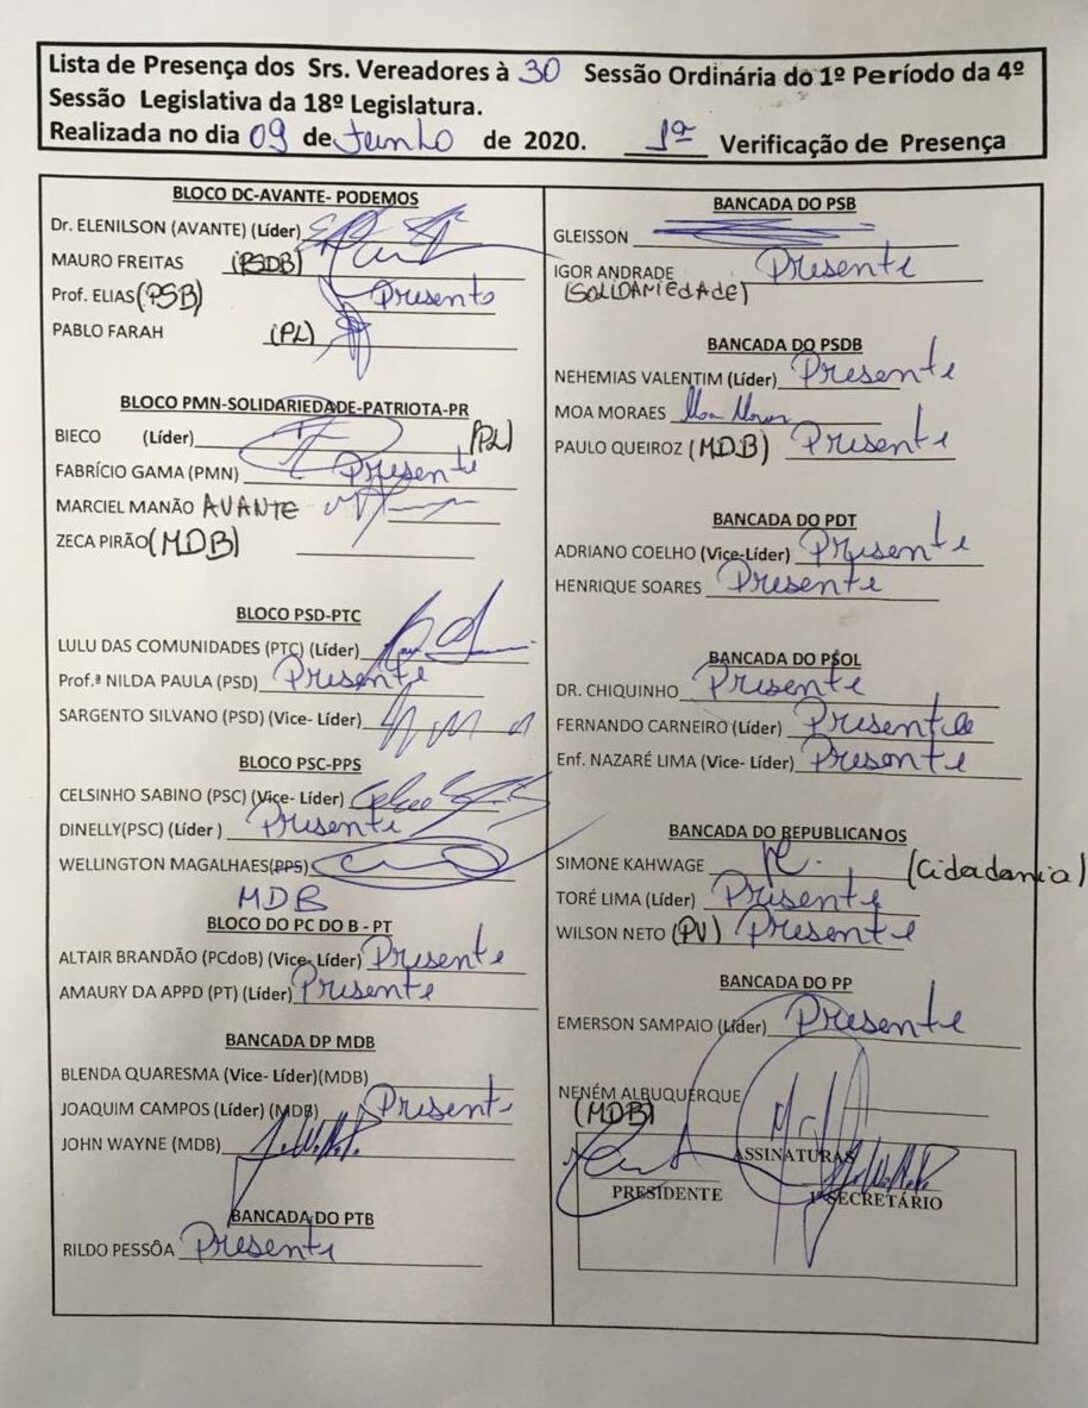 Lista de Presença dos Srs. Vereadores à 30 Sessão Ordinária do 1º Período da 4º
Sessão Legislativa da 18º Legislatura.
Realizada no dia 09 de Junho de 2020. 1ª Verificação de Presença
BLOCO DC-AVANTE- PODEMOS
Dr. ELENILSON (AVANTE) (Líder)
MAURO FREITAS (PSDB)
Prof. ELIAS (PSB) Presente
PABLO FARAH (PL)
BLOCO PMN-SOLIDARIEDADE-PATRIOTA-PR
BIECO (Líder) (PL)
FABRÍCIO GAMA (PMN) Presente
MARCIEL MANÃO AVANTE
ZECA PIRÃO (MDB)
BLOCO PSD-PTC
LULU DAS COMUNIDADES (PTC) (Líder)
Prof.ª NILDA PAULA (PSD) Presente
SARGENTO SILVANO (PSD) (Vice- Líder)
BLOCO PSC-PPS
CELSINHO SABINO (PSC) (Vice- Líder)
DINELLY(PSC) (Líder ) Presente
WELLINGTON MAGALHAES(PPS)
MDB
BLOCO DO PC DO B - PT
ALTAIR BRANDÃO (PCdoB) (Vice- Líder) Presente
AMAURY DA APPD (PT) (Líder) Presente
BANCADA DP MDB
BLENDA QUARESMA (Vice- Líder)(MDB)
JOAQUIM CAMPOS (Líder) (MDB) Presente
JOHN WAYNE (MDB)
BANCADA DO PTB
RILDO PESSÔA Presente
BANCADA DO PSB
GLEISSON
IGOR ANDRADE Presente
(SOLIDARIEDADE)
BANCADA DO PSDB
NEHEMIAS VALENTIM (Líder) Presente
MOA MORAES Moa Moraes
PAULO QUEIROZ (MDB) Presente
BANCADA DO PDT
ADRIANO COELHO (Vice-Líder) Presente
HENRIQUE SOARES Presente
BANCADA DO PSOL
DR. CHIQUINHO Presente
FERNANDO CARNEIRO (Líder) Presente
Enf. NAZARÉ LIMA (Vice- Líder) Presente
BANCADA DO REPUBLICANOS
SIMONE KAHWAGE (Cidadania)
TORÉ LIMA (Líder) Presente
WILSON NETO (PV) Presente
BANCADA DO PP
EMERSON SAMPAIO (Líder) Presente
NENÉM ALBUQUERQUE
(MDB)
ASSINATURAS
PRESIDENTE 1º SECRETÁRIO